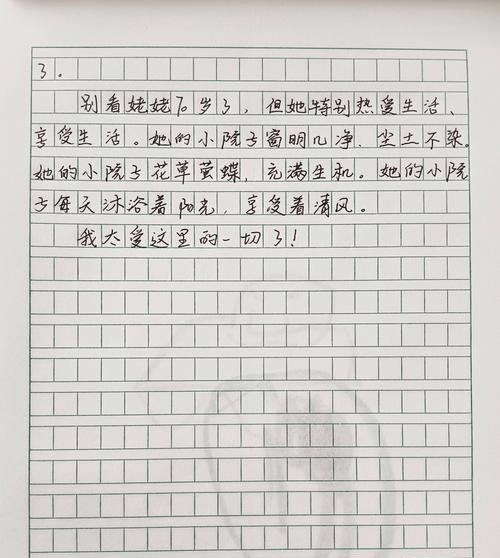 了。
别看姥姥70岁了，但她特别热爱生活、
享受生活。她的小院子窗明几净，尘土不染。
她的小院子花草萤蝶，充满生机。她的小院
子每天沐浴着阳光，享受着清风。
我太爱这里的一切了！